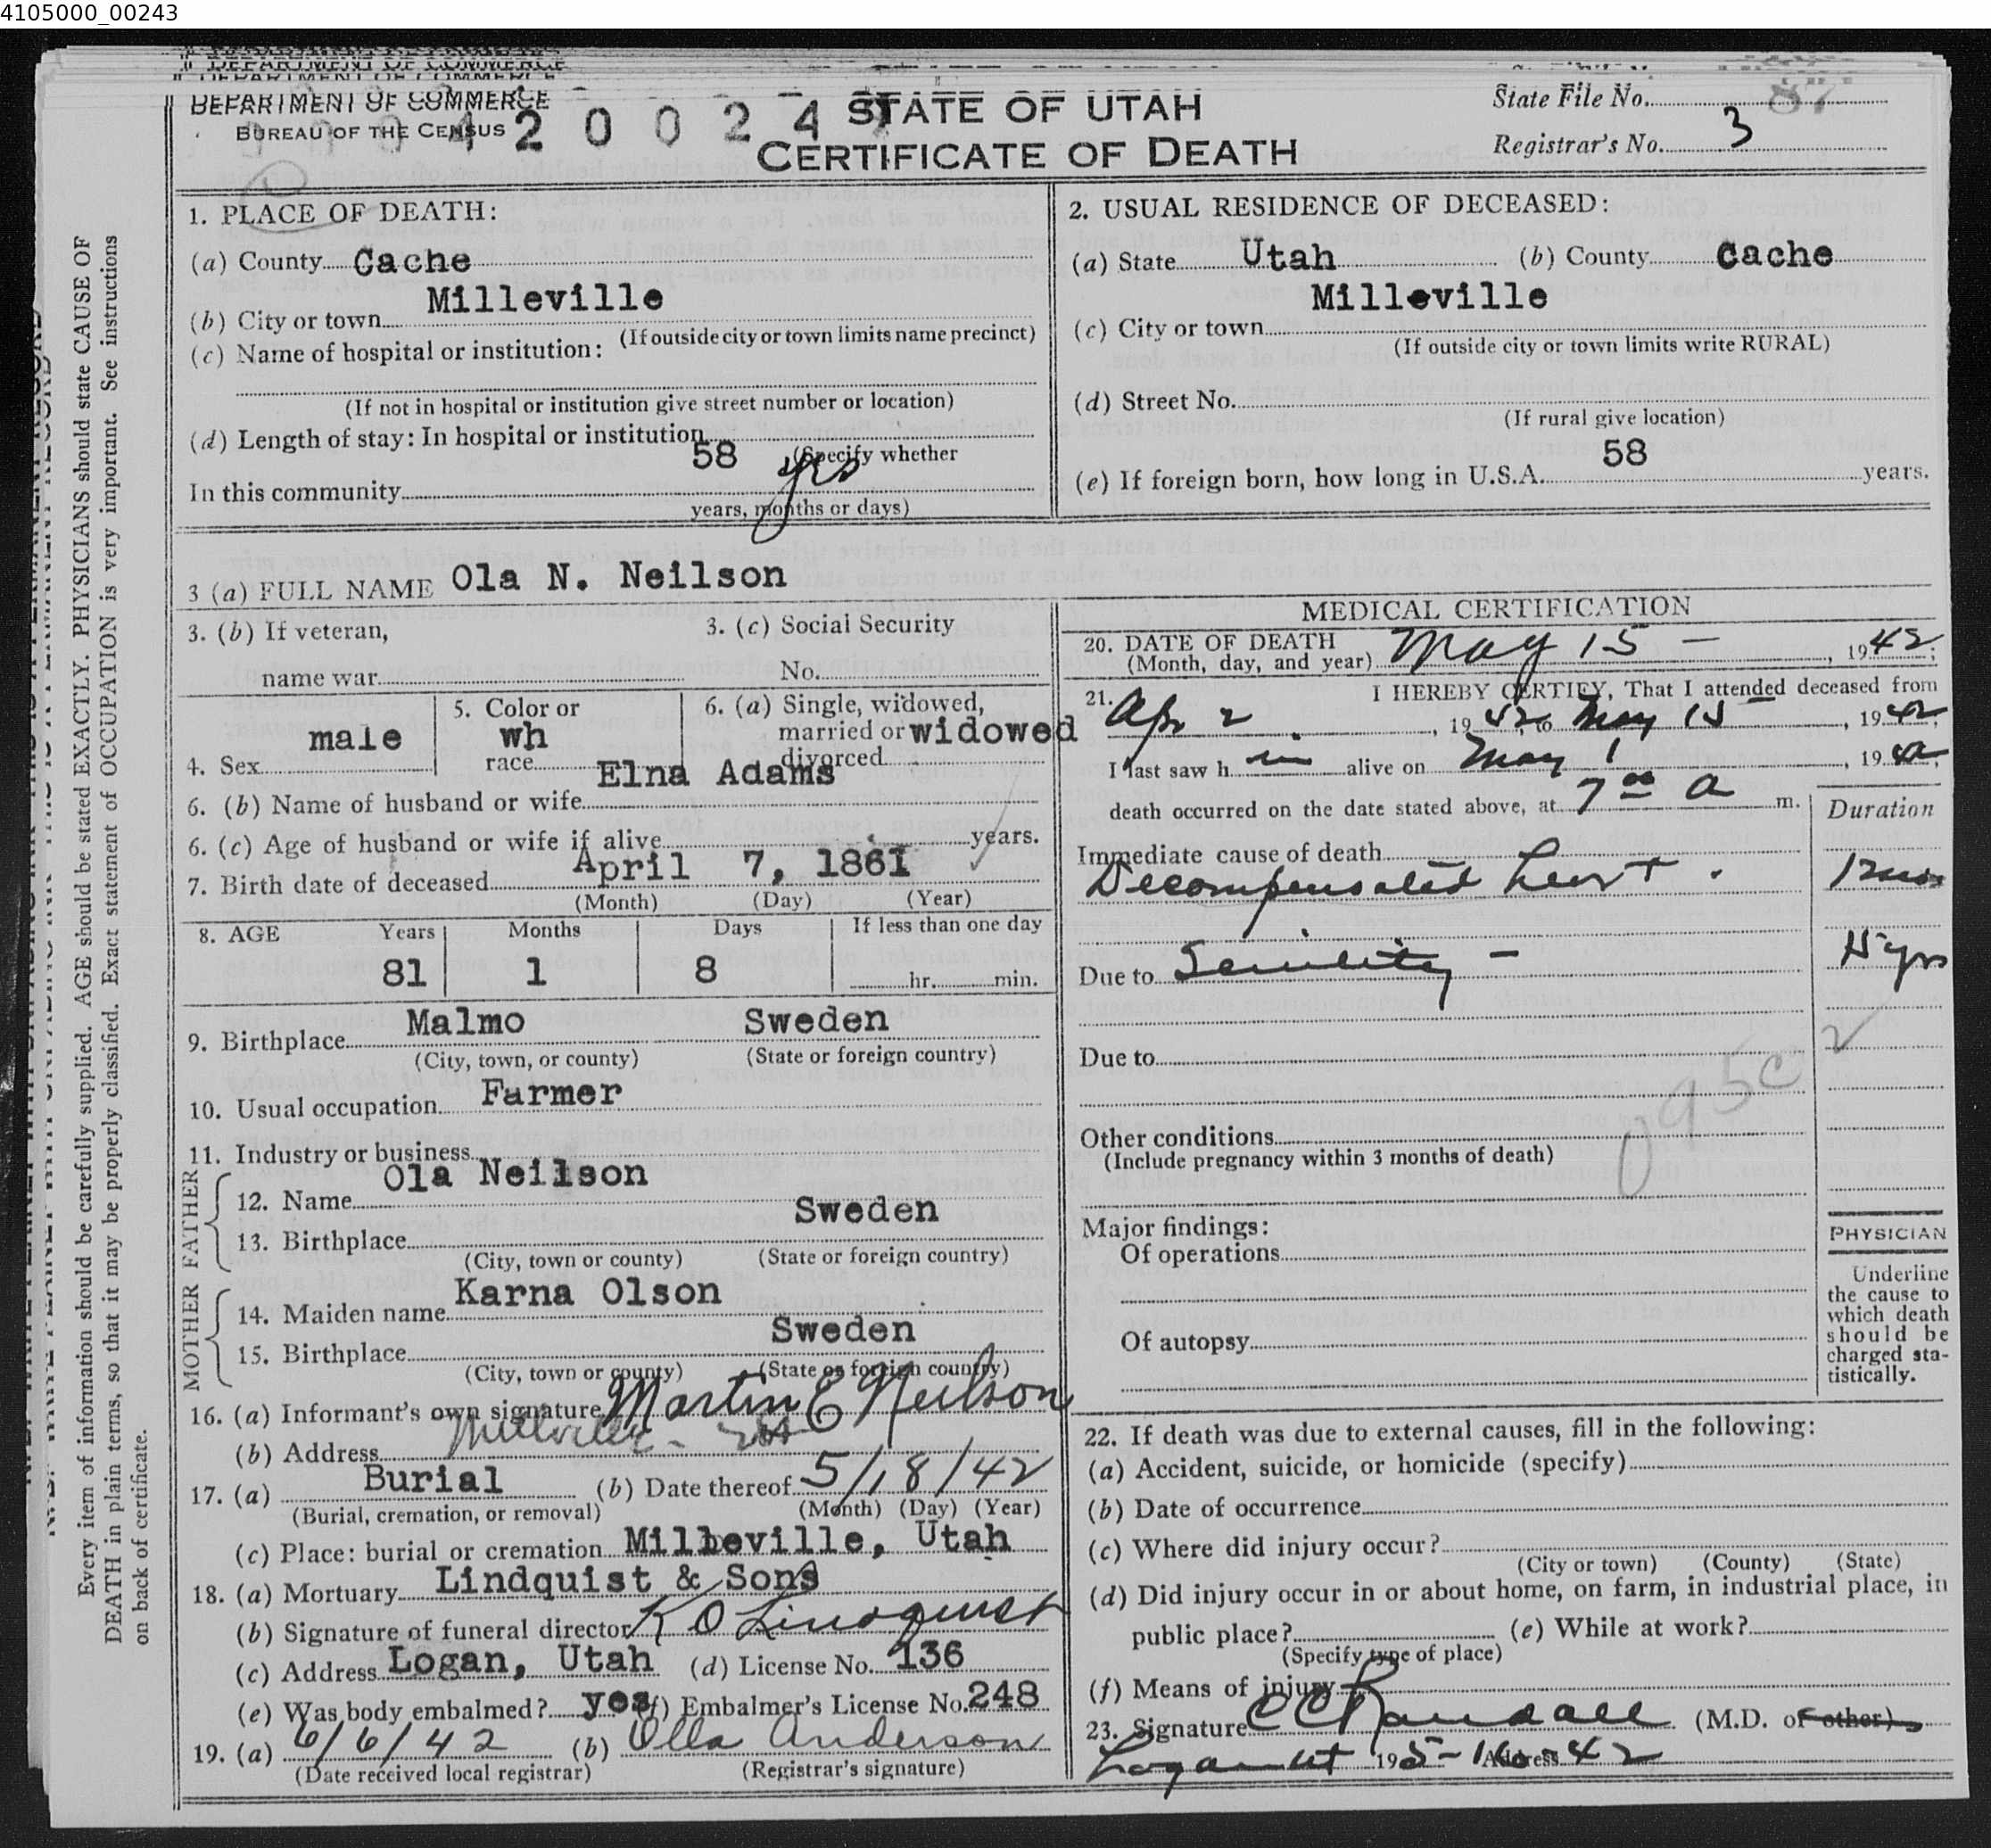 4105000_00243
DEPARTMENT OF COMMERCE
BUREAU OF THE CENSUS
STATE OF UTAH
CERTIFICATE OF DEATH
State File No. 87
Registrar's No. 3
1. PLACE OF DEATH:
(a) County Cache
(b) City or town Milleville
(If outside city or town limits name precinct)
(c) Name of hospital or institution:
(If not in hospital or institution give street number or location)
(d) Length of stay: In hospital or institution
(Specify whether
In this community 58 yrs
years, months or days)
2. USUAL RESIDENCE OF DECEASED:
(a) State Utah (b) County Cache
(c) City or town Milleville
(If outside city or town limits write RURAL)
(d) Street No.
(If rural give location)
(e) If foreign born, how long in U.S.A. 58 years.
3 (a) FULL NAME Ola N. Neilson
3. (b) If veteran, 3. (c) Social Security
name war No.
4. Sex male
5. Color or race wh
6. (a) Single, widowed, married or divorced widowed
6. (b) Name of husband or wife Elna Adams
6. (c) Age of husband or wife if alive years.
7. Birth date of deceased April 7, 1861
(Month) (Day) (Year)
8. AGE Years Months Days If less than one day
81 1 8 hr. min.
9. Birthplace Malmo Sweden
(City, town, or county) (State or foreign country)
10. Usual occupation Farmer
11. Industry or business
FATHER
12. Name Ola Neilson
13. Birthplace Sweden
(City, town or county) (State or foreign country)
MOTHER
14. Maiden name Karna Olson
15. Birthplace Sweden
(City, town or county) (State or foreign country)
16. (a) Informant's own signature Martin E Neilson
(b) Address Millville
17. (a) Burial (b) Date thereof 5/18/42
(Burial, cremation, or removal) (Month) (Day) (Year)
(c) Place: burial or cremation Milleville, Utah
18. (a) Mortuary Lindquist & Sons
(b) Signature of funeral director K O Lindquist
(c) Address Logan, Utah (d) License No. 136
(e) Was body embalmed? yes (f) Embalmer's License No. 248
19. (a) 6/6/42 (b) Olla Anderson
(Date received local registrar) (Registrar's signature)
MEDICAL CERTIFICATION
20. DATE OF DEATH
(Month, day, and year) May 15 - , 1942;
21. I HEREBY CERTIFY, That I attended deceased from
Apr 2, 1942, to May 15, 1942;
I last saw him alive on May 1, 1942;
death occurred on the date stated above, at 7 00 a m.
Duration
Immediate cause of death
Decompensated heart.
Due to Senility -
Due to
095c
Other conditions
(Include pregnancy within 3 months of death)
Major findings:
Of operations
Of autopsy
PHYSICIAN
Underline
the cause to
which death
should be
charged sta-
tistically.
22. If death was due to external causes, fill in the following:
(a) Accident, suicide, or homicide (specify)
(b) Date of occurrence
(c) Where did injury occur?
(City or town) (County) (State)
(d) Did injury occur in or about home, on farm, in industrial place, in
public place? (e) While at work?
(Specify type of place)
(f) Means of injury
23. Signature C C Randall (M.D. or other)
Logan ut 19 5-16-42 Address
Every item of information should be carefully supplied. AGE should be stated EXACTLY. PHYSICIANS should state CAUSE OF
DEATH in plain terms, so that it may be properly classified. Exact statement of OCCUPATION is very important. See instructions
on back of certificate.